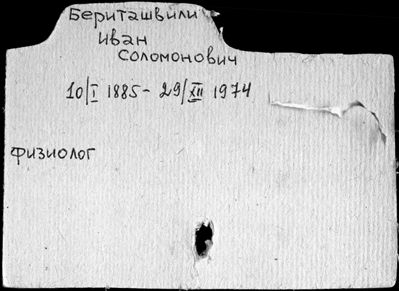 Бериташвили
Иван
Соломонович
10/I 1885 - 29/XII 1974
физиолог